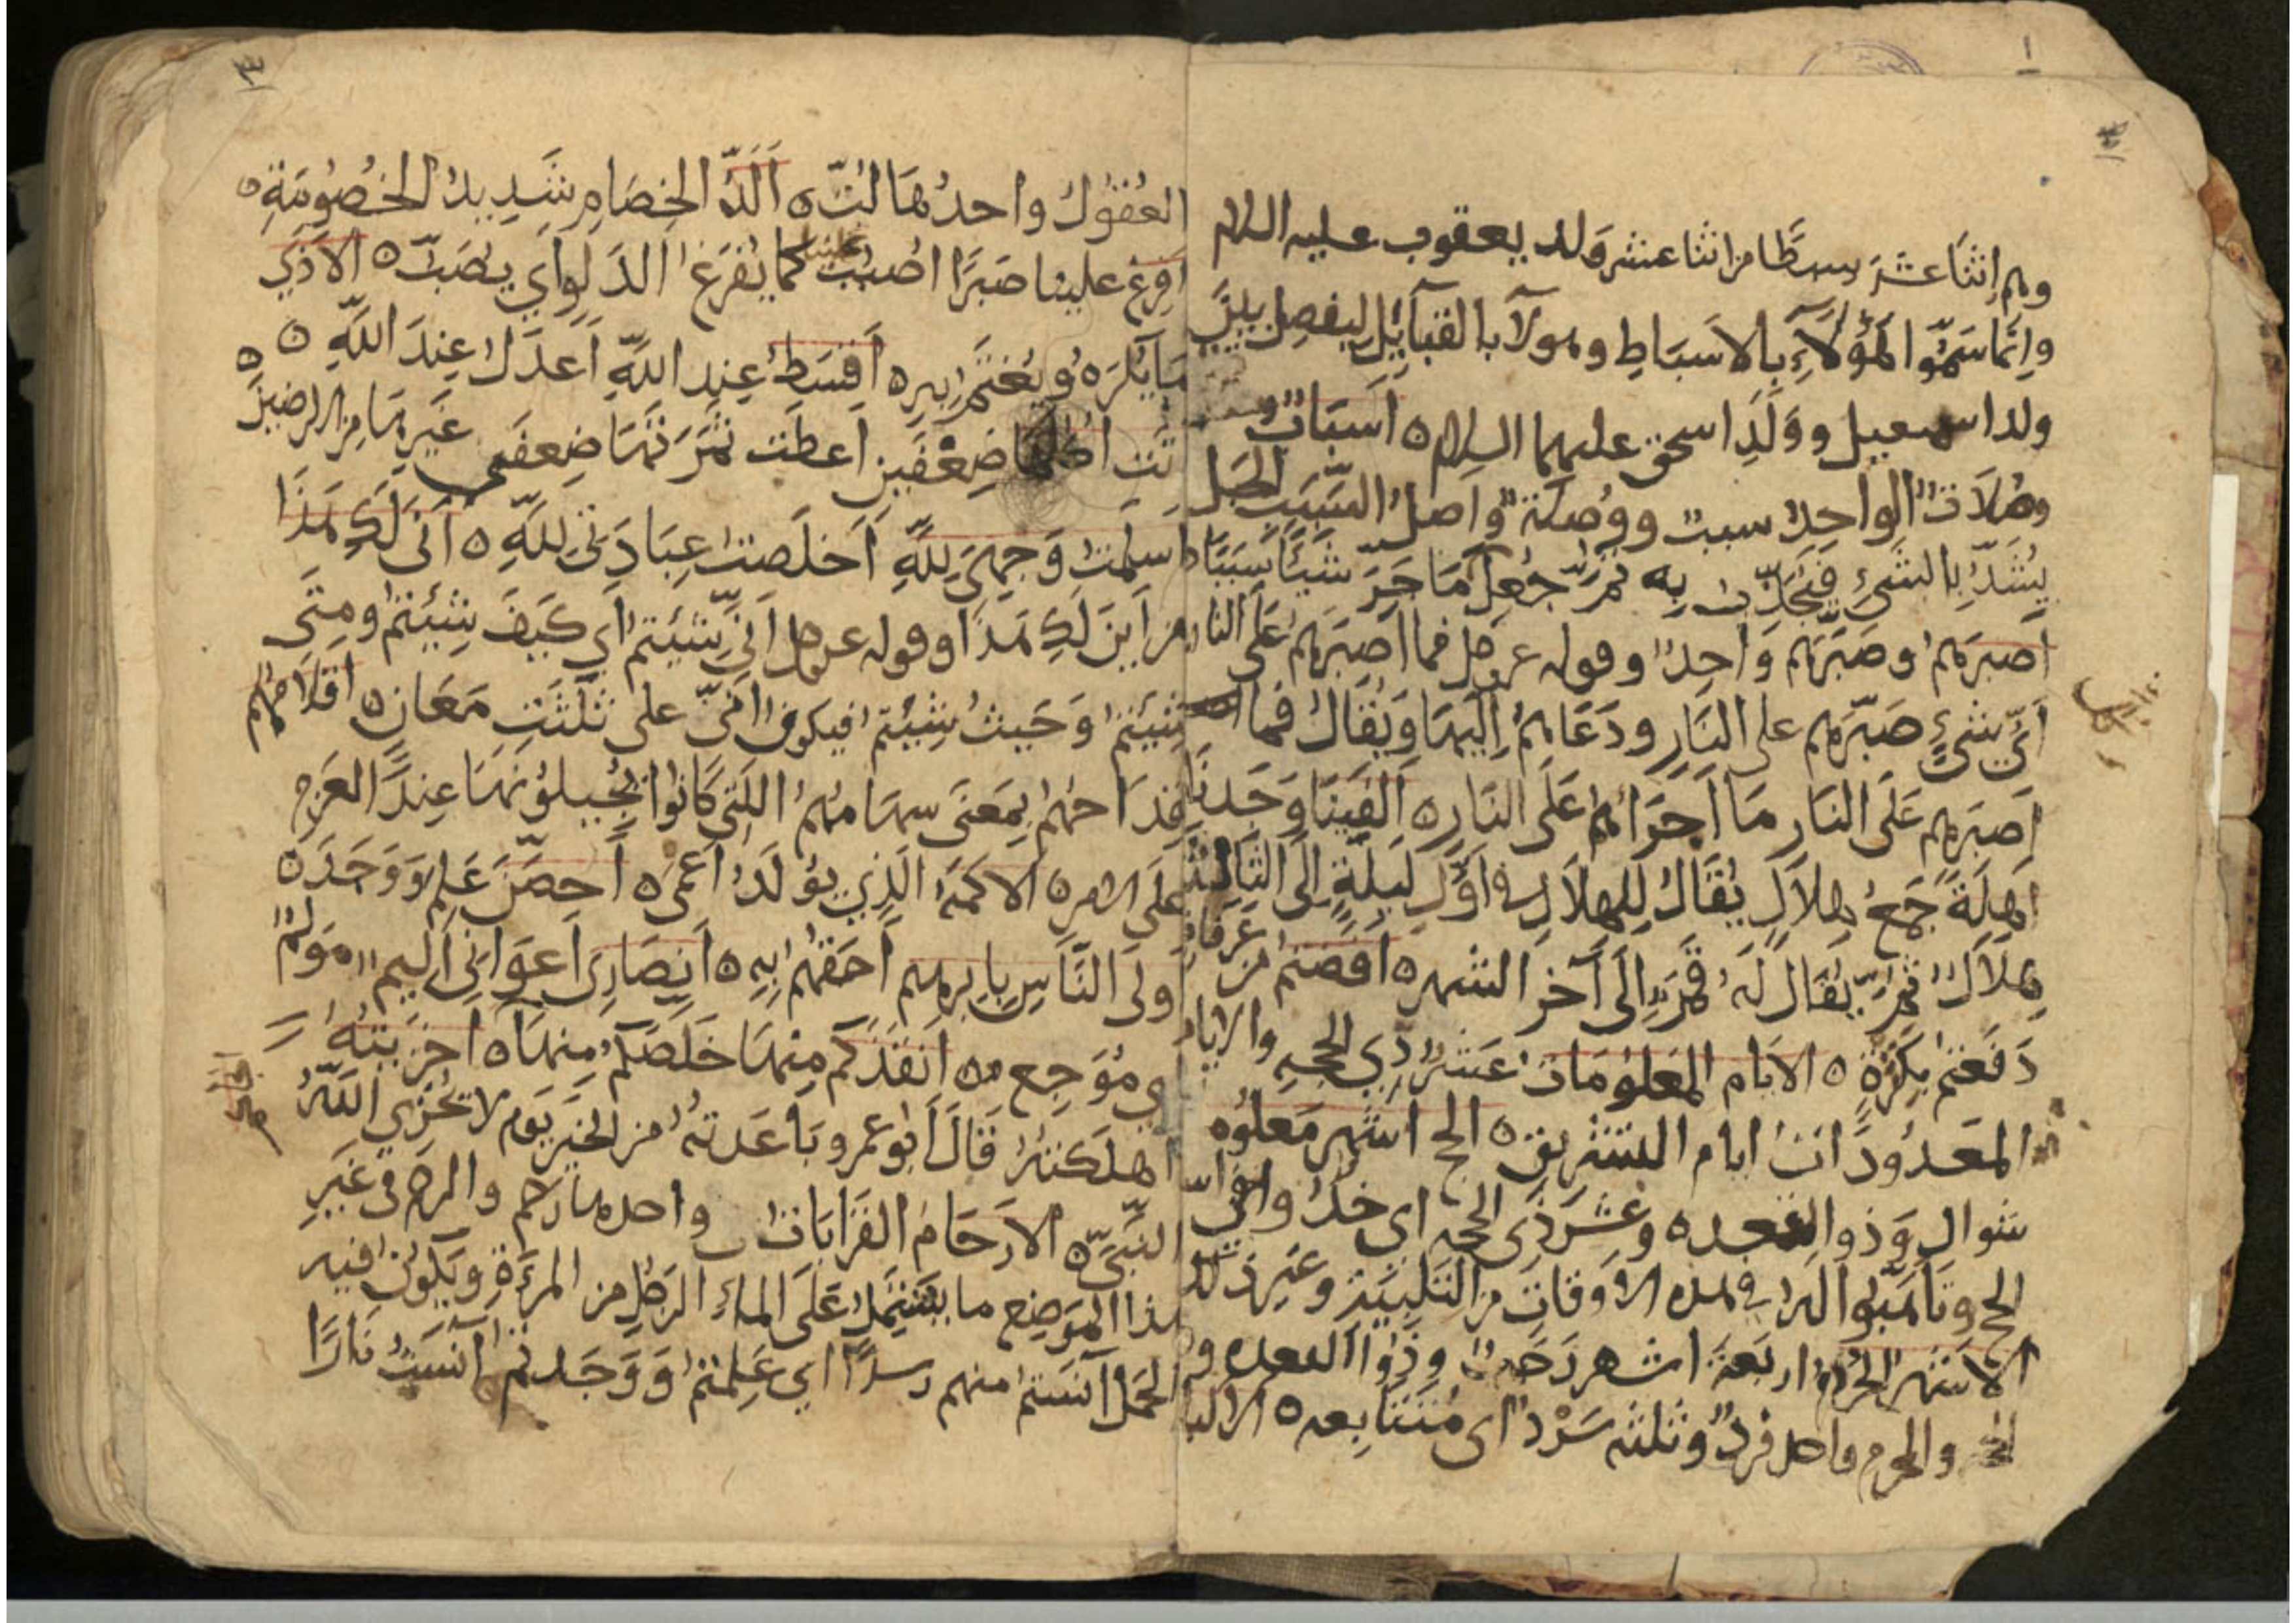 ١
٢
وهم إثنا عَشَرَ سِبطًا من اثنا عشر وَلد يعقوب عليه السلام
وإنّما سَمُّوا هَؤُلَآءِ بالأسبَاطِ وهولآ بالقَبآئِلِ ليفصِل بَيْنَ
ولد اسمعيل ووَلَدِ اسحق عليهما السلام ٥ أسبَابٌ
وصُلَاتٌ الواحِدُ سببٌ ووُصلَةٌ وأصلُ السَّبَبِ الحَبل
يُشَدُّ بالشَيْءِ فَيُجذَبُ بِهِ ثُمَّ جُعِلَ مَا جَرَّ شَيْأً سَبَبًا ٥
أصبَرَهُمْ وصَبَّرَهُم وَاحِدٌ وقوله عز وجل فما أصبَرَهُمْ عَلَى النار
أيّ شَيْءٍ صَبَّرَهُم على النَارِ ودَعَاهُمْ إلَيهَا وَيُقَالُ فما
أصبَرَهُم عَلَى النَار مَا أجرَأهُمْ عَلَى النَارِ ٥ ألفَينَا وَجَدنَا
أهِلَّة جَمعُ هِلَالٍ يُقَالُ لِلهِلَالِ في أوَّلِ لَيلَةٍ إلَى الثَالِثَة
هِلَالٌ ثُمَّ يُقَال لَهُ قَمَرٌ إلَى آخر الشهر ٥ أفَضتُم من عَرفاتٍ
دَفَعتم بكَثرَةٍ ٥ الأيَّام المَعلُومَات عَشْرُ ذي الحجه والايام
المَعدُودَاتُ ايام التشريق ٥ الحج اشهر مَعلُوم
شوالِ وَذو القعده وعَشرَ ذي الحجه اي خذوا في أسباب
الحج وتَأَهّبُوا له في هذه الأوقَاتِ من التَلبِيَةِ وغَيرِ ذَلك
الأشهُر الحُرم اربَعَة اشهر رَجَبٌ وذُوا القعده وذو
الحجه والمحرم واحد فردٌ وثلثه سَرْدٌ اي مُتتَابِعه ٥ الالبا
٣
العُقُولُ واحدُهَا لُبٌّ ٥ ألَدُّ الخِصَامِ شَدِيدُ الخُصُومَةِ ٥
أفرِغ علينا صَبرًا اصبُبْ علينا كما يُفرَغُ الدَلوا أي يُصَبّ ٥ الأذَي
مَا يُكرَهُ ويُغتَمُّ بِهِ ٥ أقسَطُ عِند اللهِ أعدَلُ عِندَ اللهِ ٥
آتَت أُكُلَهَا ضِعْفَينِ أعطَت ثمَرَتَهَا ضِعفَي غَيرِهَا من الأرضِينَ ٥
أسلَمتُ وَجهِيَ لِلهِ أخلَصتُ عِبَادَتِيَ لِلهِ ٥ أنَّى لَكِ هَذَا
من أينَ لَكِ هَذَا وقوله عز وجل أنَّى شِئتم أي كَيفَ شِئتم ومتَى
شئتم وَحَيثُ شِئتم فيكون أنَّى على ثلثَتِ مَعَانٍ ٥ أقلَامَهُم
قِدَاحَهُم بِمَعنَى سِهَامِهُمُ اللتي كانُوا يُجيلُونَهَا عِندَ العَزمِ
عَلَى الامر ٥ الأكمَهُ الَذِي يُولَدُ أعمَى ٥ أحَسَّ عَلِمَ وَوَجَدَ ٥
أولَى النَّاسِ بابرهيم أحَقُهُم بِهِ ٥ أنصَارِي أعوَانِي أليم مُولِمٌ
أي مُوَجِع ٥ أنقَذَكُم مِنهَا خَلَصَكُم مِنهَا ٥ أخزَيتَهُ
أهلَكتَهُ قَالَ أبُو عَمرو بَاعَدتَهُ من الخَيرِ يَوم لا يُخزِي اللهُ
النَّبِيّ ٥ الأرحَام القَرَابَات واحدها رحم والرحم في غَيرِ
هذا الموَضِع ما يَشتَمِلُ عَلَى الماءِ الرَجُلِ من المَرءَةِ ويَكُون فيه
الحَمل آنَستُم منهم رشدًا اي عَلِمتم وَوَجَدتُم آنَستُ نَارًا